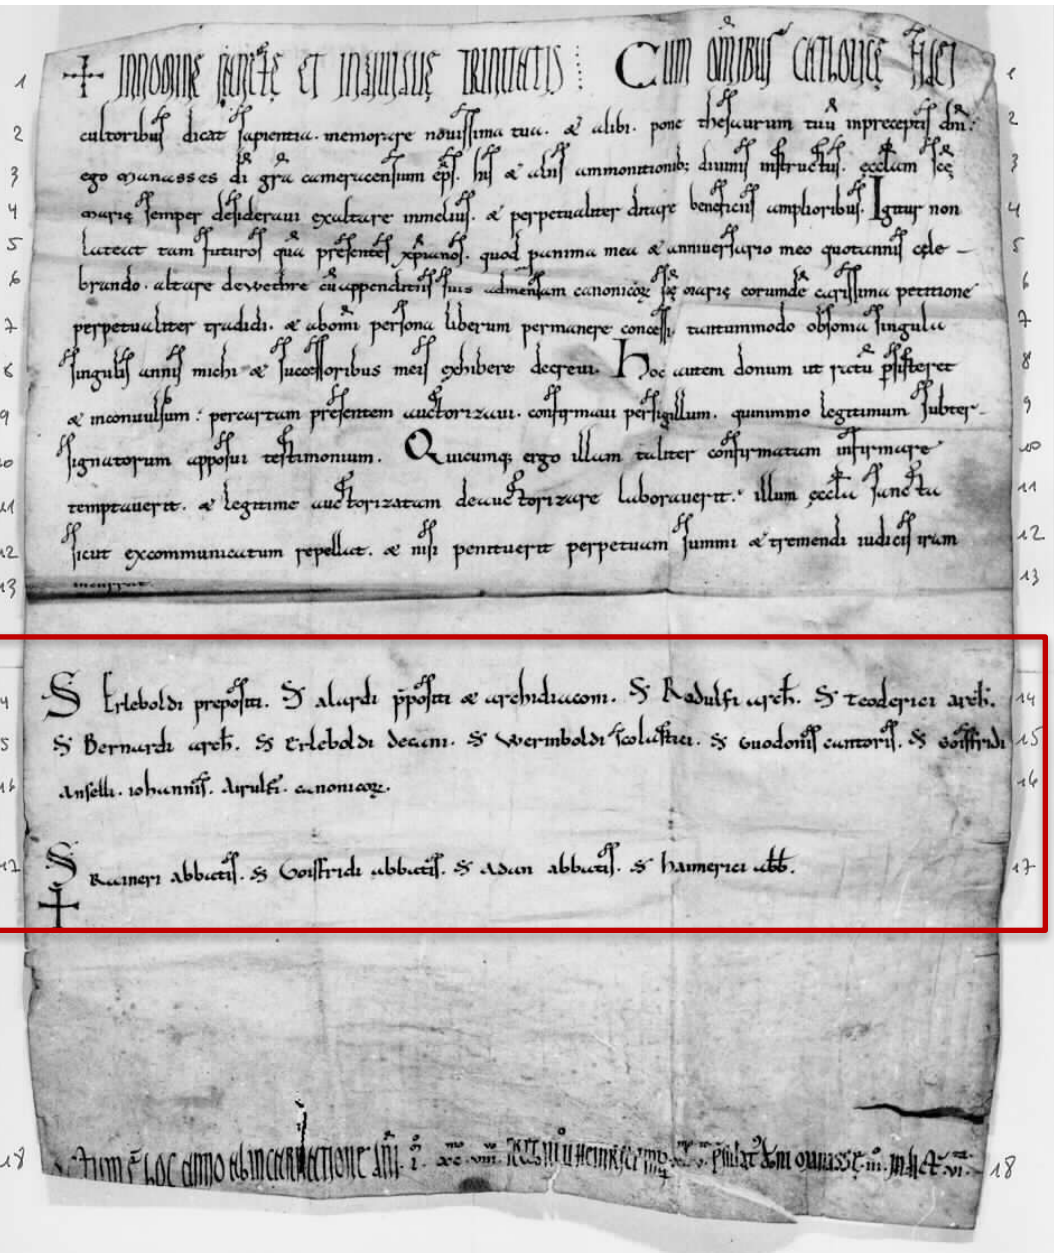 1 + IN NOMINE SANCTE ET INDIVIDUE TRINITATIS : CUM OMIBUS CATOLICE FIDEI 1
2 cultoribus dicat sapientia. memorare novissima tua. & alibi. pone thesaurum tuu in preceptis dni. 2
3 ego Manasses di gra cameracensium eps. his & aliis ammonitionib; divinis instructus. ęcclam scę 3
4 Marię semper desideravi exaltare in melius. & perpetualiter ditare beneficiis amplioribus. Igitur non 4
5 lateat tam futuros qua presentes xpianos. quod p anima mea & anniversario meo quotannis cele- 5
6 brando. altare de wethre cu appenditiis suis ad mensam canonicoꝝ scę Marię eorunde carissima petitione 6
7 perpetualiter tradidi. & ab omi persona liberum permanere concessi. tantummodo obsonia singula 7
8 singulis annis michi & successoribus meis exhibere decrevi. Hoc autem donum ut ratu psisteret 8
9 & inconvulsum : per cartam presentem auctorizavi. confirmavi per sigillum. quinimmo legitimum subter- 9
10 signatorum apposui testimonium. Quicumq; ergo illam taliter confirmatam infirmare 10
11 temptaverit. & legitime auctorizatam deauctorizare laboraverit. illum ęccla sancta 11
12 sicut excommunicatum repellat. & nisi penituerit perpetuam summi & tremendi iudicis iram 12
13 incurrat. 13
14 S Erleboldi prepositi. S Alardi ppositi & archidiaconi. S Radulfi arch. S Teoderici arch. 14
15 S Bernardi arch. S Erleboldi decani. S Werimboldi scolastici. S Guodonis cantoris. S Goisfridi 15
16 Anselli. Iohannis. Airulfi. canonicoꝝ. 16
17 S Raineri abbatis. S Goisfridi abbatis. S Adan abbatis. S Haimerici abb. 17
+
18 Actum ē hoc anno ab incarnatione dni. 18